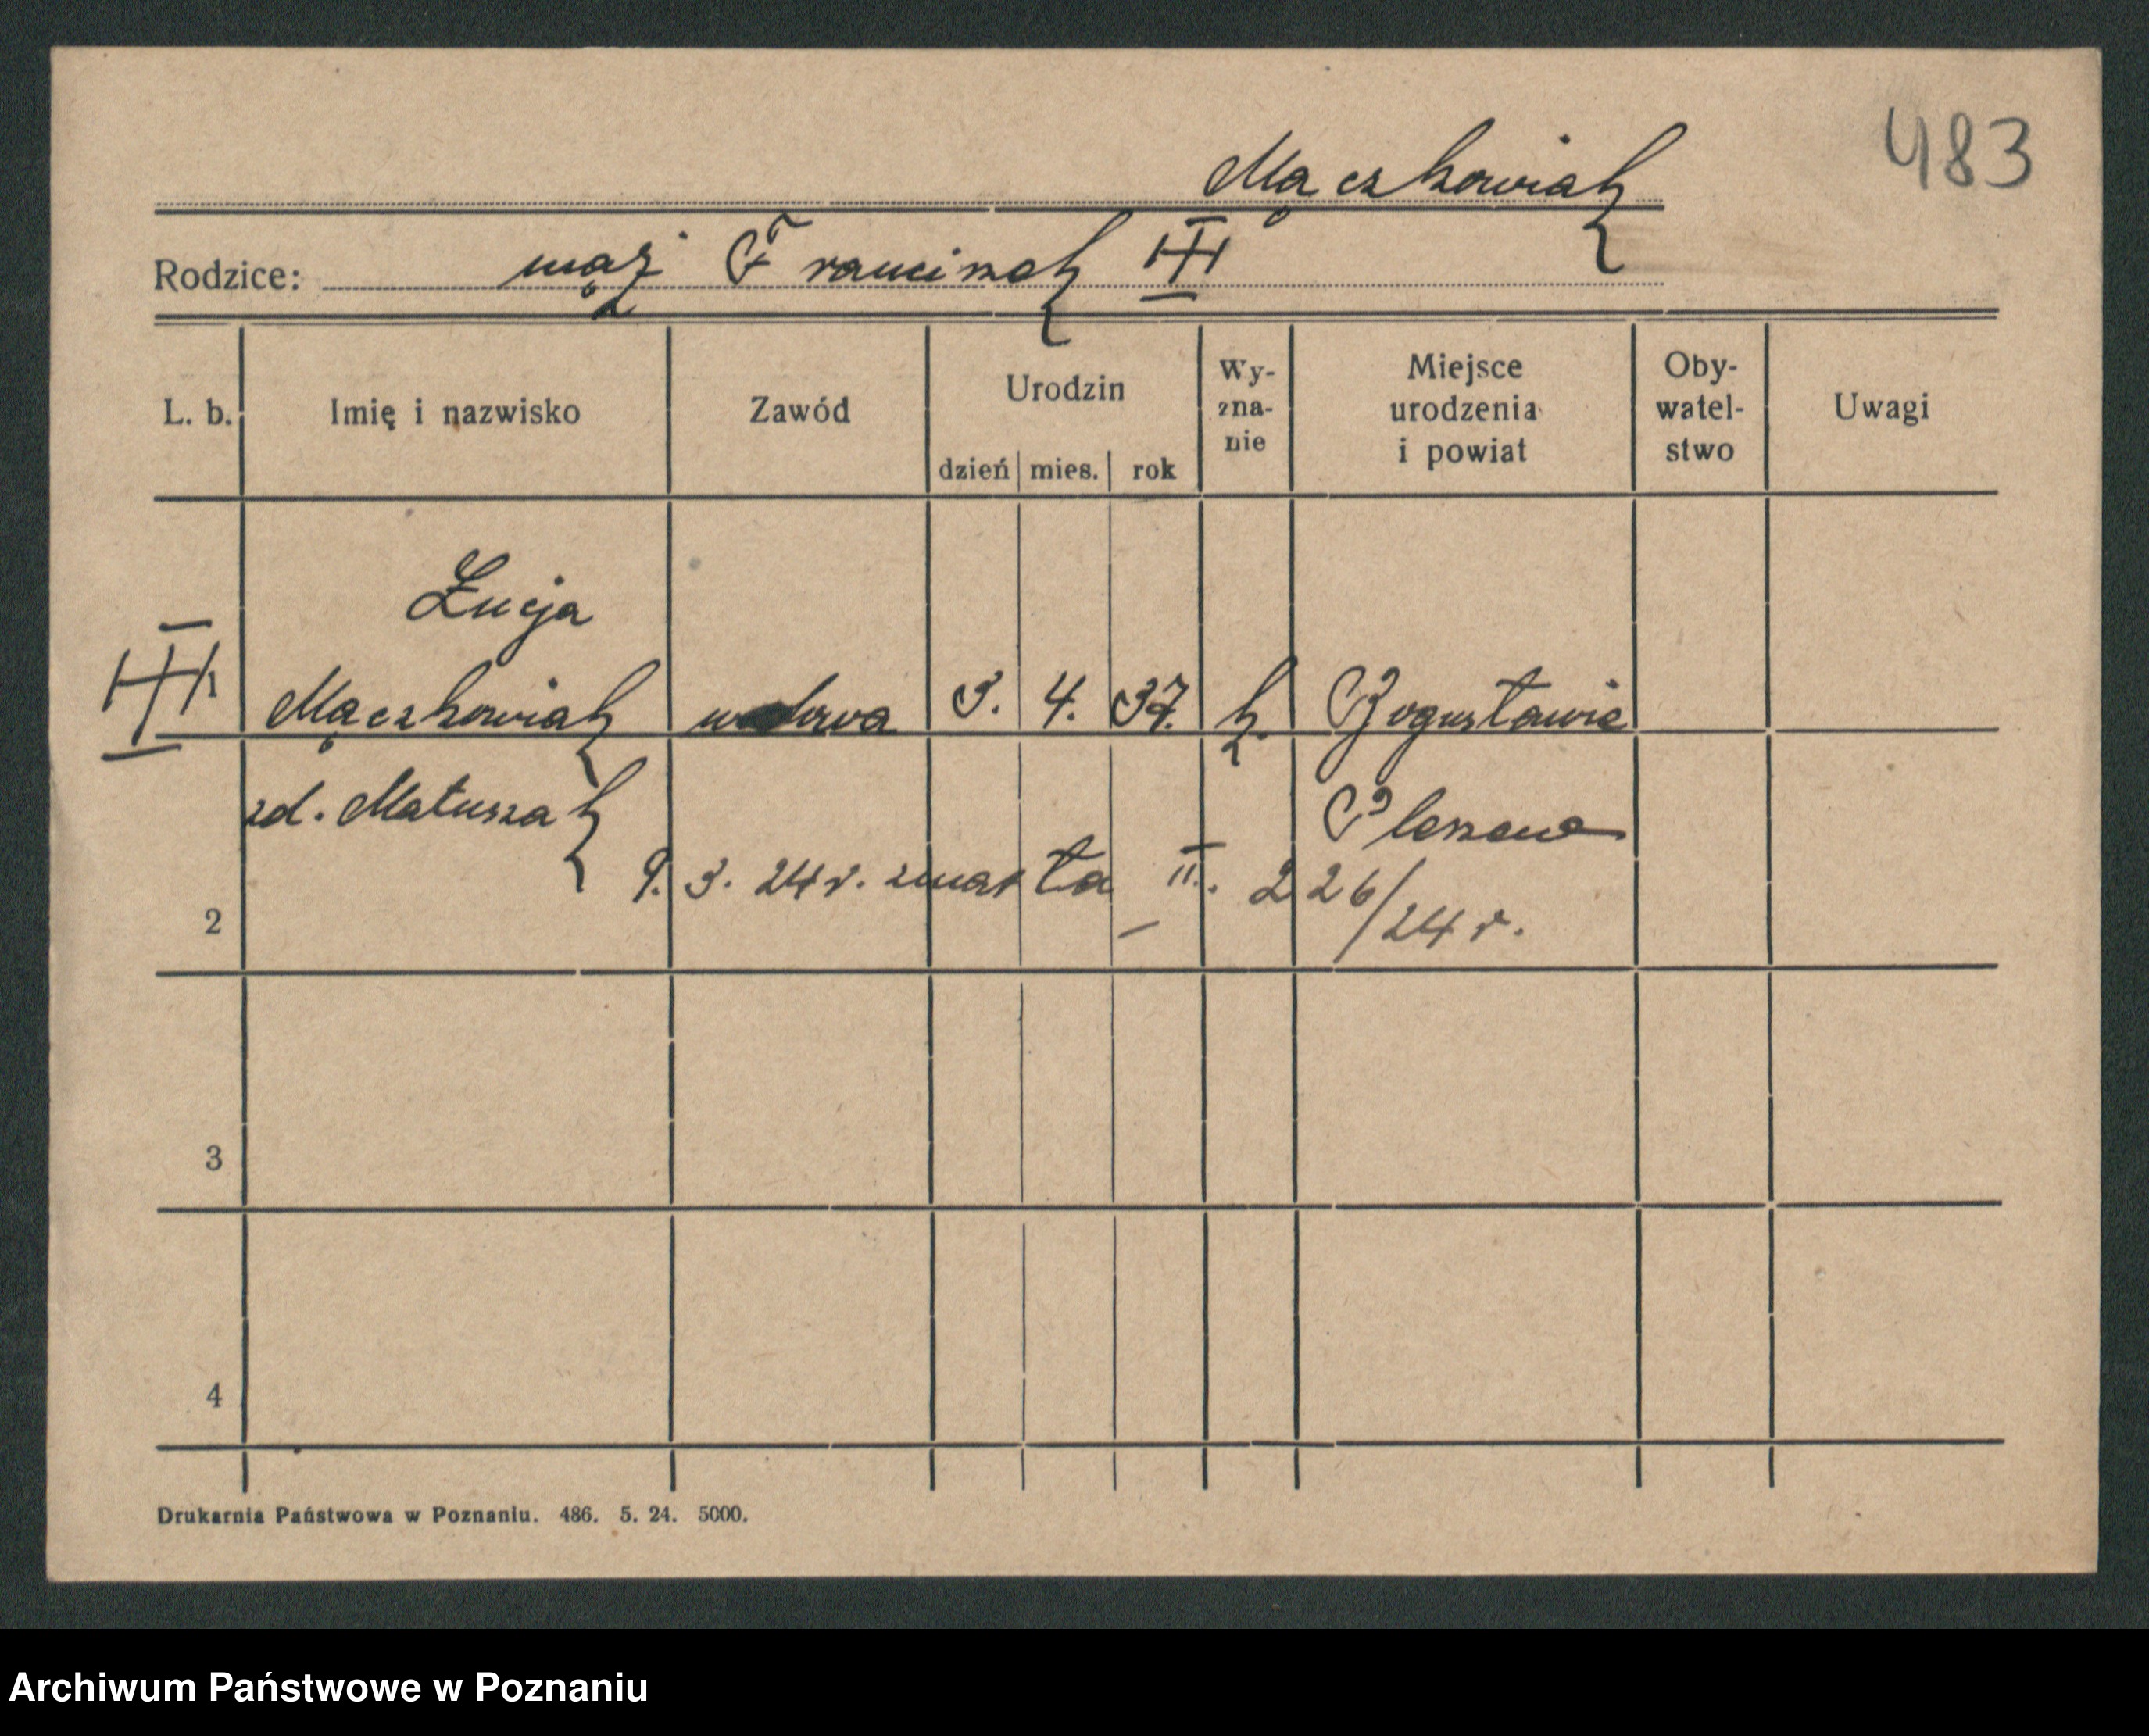 483
Mączkowiak
Rodzice: mąż Franciszek
L. b. Imię i nazwisko Zawód Urodzin dzień mies. rok Wy- zna- nie Miejsce urodzenia i powiat Oby- watel- stwo Uwagi
Łucja
Mączkowiak wdowa 3. 4. 37. k. Bogusławie
zd. Matuszak Pleszew
9. 3. 24 r. zmarła II. 226/24 r.
2
3
4
Drukarnia Państwowa w Poznaniu. 486. 5. 24. 5000.
Archiwum Państwowe w Poznaniu